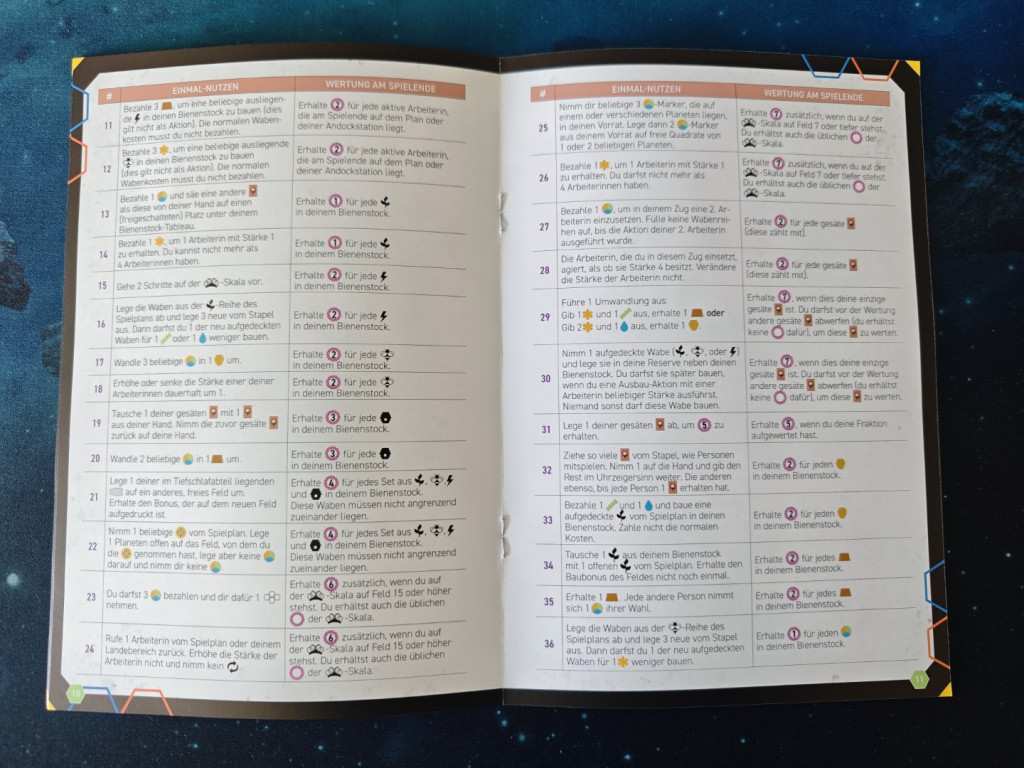 # EINMAL-NUTZEN WERTUNG AM SPIELENDE
11
Bezahle 3 , um eine beliebige ausliegen-
de in deinen Bienenstock zu bauen (dies
gilt nicht als Aktion). Die normalen Waben-
kosten musst du nicht bezahlen.
Erhalte 2 für jede aktive Arbeiterin,
die am Spielende auf dem Plan oder
deiner Andockstation liegt.
12
Bezahle 3 , um eine beliebige ausliegende
in deinen Bienenstock zu bauen
(dies gilt nicht als Aktion). Die normalen
Wabenkosten musst du nicht bezahlen.
Erhalte 2 für jede aktive Arbeiterin,
die am Spielende auf dem Plan oder
deiner Andockstation liegt.
13
Bezahle 1 und säe eine andere
als diese von deiner Hand auf einen
(freigeschalteten) Platz unter deinem
Bienenstock-Tableau.
Erhalte 1 für jede
in deinem Bienenstock.
14
Bezahle 1 , um 1 Arbeiterin mit Stärke 1
zu erhalten. Du kannst nicht mehr als
4 Arbeiterinnen haben.
Erhalte 1 für jede
in deinem Bienenstock.
15
Gehe 2 Schritte auf der -Skala vor.
Erhalte 2 für jede
in deinem Bienenstock.
16
Lege die Waben aus der -Reihe des
Spielplans ab und lege 3 neue vom Stapel
aus. Dann darfst du 1 der neu aufgedeckten
Waben für 1 oder 1 weniger bauen.
Erhalte 2 für jede
in deinem Bienenstock.
17
Wandle 3 beliebige in 1 um.
Erhalte 2 für jede
in deinem Bienenstock.
18
Erhöhe oder senke die Stärke einer deiner
Arbeiterinnen dauerhaft um 1.
Erhalte 2 für jede
in deinem Bienenstock.
19
Tausche 1 deiner gesäten mit 1
aus deiner Hand. Nimm die zuvor gesäte
zurück auf deine Hand.
Erhalte 3 für jede
in deinem Bienenstock.
20
Wandle 2 beliebige in 1 um.
Erhalte 3 für jede
in deinem Bienenstock.
21
Lege 1 deiner im Tiefschlafabteil liegenden
auf ein anderes, freies Feld um.
Erhalte den Bonus, der auf dem neuen Feld
aufgedruckt ist.
Erhalte 4 für jedes Set aus , ,
und in deinem Bienenstock.
Diese Waben müssen nicht angrenzend
zueinander liegen.
22
Nimm 1 beliebige vom Spielplan. Lege
1 Planeten offen auf das Feld, von dem du
die genommen hast, lege aber keine
darauf und nimm dir keine
Erhalte 4 für jedes Set aus , ,
und in deinem Bienenstock.
Diese Waben müssen nicht angrenzend
zueinander liegen.
23
Du darfst 3 bezahlen und dir dafür 1
nehmen.
Erhalte 6 zusätzlich, wenn du auf
der -Skala auf Feld 15 oder höher
stehst. Du erhältst auch die üblichen
der -Skala.
24
Rufe 1 Arbeiterin vom Spielplan oder deinem
Landebereich zurück. Erhöhe die Stärke der
Arbeiterin nicht und nimm kein .
Erhalte 6 zusätzlich, wenn du auf
der -Skala auf Feld 15 oder höher
stehst. Du erhältst auch die üblichen
der -Skala.
10
# EINMAL-NUTZEN WERTUNG AM SPIELENDE
25
Nimm dir beliebige 3 -Marker, die auf
einem oder verschiedenen Planeten liegen,
in deinen Vorrat. Lege dann 2 -Marker
aus deinem Vorrat auf freie Quadrate von
1 oder 2 beliebigen Planeten.
Erhalte 7 zusätzlich, wenn du auf der
-Skala auf Feld 7 oder tiefer stehst.
Du erhältst auch die üblichen der
-Skala.
26
Bezahle 1 , um 1 Arbeiterin mit Stärke 1
zu erhalten. Du darfst nicht mehr als
4 Arbeiterinnen haben.
Erhalte 7 zusätzlich, wenn du auf der
-Skala auf Feld 7 oder tiefer stehst.
Du erhältst auch die üblichen der
-Skala.
27
Bezahle 1 , um in deinem Zug eine 2. Ar-
beiterin einzusetzen. Fülle keine Wabenrei-
hen auf, bis die Aktion deiner 2. Arbeiterin
ausgeführt wurde.
Erhalte 2 für jede gesäte
(diese zählt mit).
28
Die Arbeiterin, die du in diesem Zug einsetzt,
agiert, als ob sie Stärke 4 besitzt. Verändere
die Stärke der Arbeiterin nicht.
Erhalte 2 für jede gesäte
(diese zählt mit).
29
Führe 1 Umwandlung aus:
Gib 1 und 1 aus, erhalte 1 oder
Gib 2 und 1 aus, erhalte 1 .
Erhalte 7, wenn dies deine einzige
gesäte ist. Du darfst vor der Wertung
andere gesäte abwerfen (du erhältst
keine dafür), um diese zu werten.
30
Nimm 1 aufgedeckte Wabe ( , , oder )
und lege sie in deine Reserve neben deinen
Bienenstock. Du darfst sie später bauen,
wenn du eine Ausbau-Aktion mit einer
Arbeiterin beliebiger Stärke ausführst.
Niemand sonst darf diese Wabe bauen.
Erhalte 7, wenn dies deine einzige
gesäte ist. Du darfst vor der Wertung
andere gesäte abwerfen (du erhältst
keine dafür), um diese zu werten.
31
Lege 1 deiner gesäten ab, um 5 zu
erhalten.
Erhalte 5, wenn du deine Fraktion
aufgewertet hast.
32
Ziehe so viele vom Stapel, wie Personen
mitspielen. Nimm 1 auf die Hand und gib den
Rest im Uhrzeigersinn weiter. Die anderen
ebenso, bis jede Person 1 erhalten hat.
Erhalte 2 für jeden
in deinem Bienenstock.
33
Bezahle 1 und 1 und baue eine
aufgedeckte vom Spielplan in deinen
Bienenstock. Zahle nicht die normalen
Kosten.
Erhalte 2 für jeden
in deinem Bienenstock.
34
Tausche 1 aus deinem Bienenstock
mit 1 offenen vom Spielplan. Erhalte den
Baubonus des Feldes nicht noch einmal.
Erhalte 2 für jedes
in deinem Bienenstock.
35
Erhalte 1 . Jede andere Person nimmt
sich 1 ihrer Wahl.
Erhalte 2 für jedes
in deinem Bienenstock.
36
Lege die Waben aus der -Reihe des
Spielplans ab und lege 3 neue vom Stapel
aus. Dann darfst du 1 der neu aufgedeckten
Waben für 1 weniger bauen.
Erhalte 1 für jeden
in deinem Bienenstock.
11